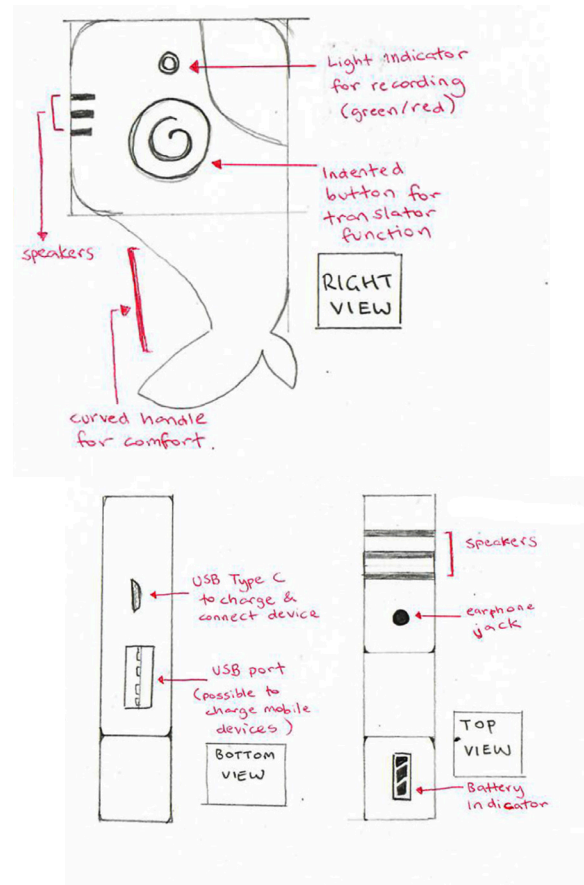 Light indicator
for recording
(green/red)
Indented
button for
translator
function
speakers
RIGHT
VIEW
curved handle
for comfort.
USB Type C
to charge &
connect device
USB port
(possible to
charge mobile
devices)
BOTTOM
VIEW
speakers
earphone
jack
TOP
VIEW
Battery
indicator